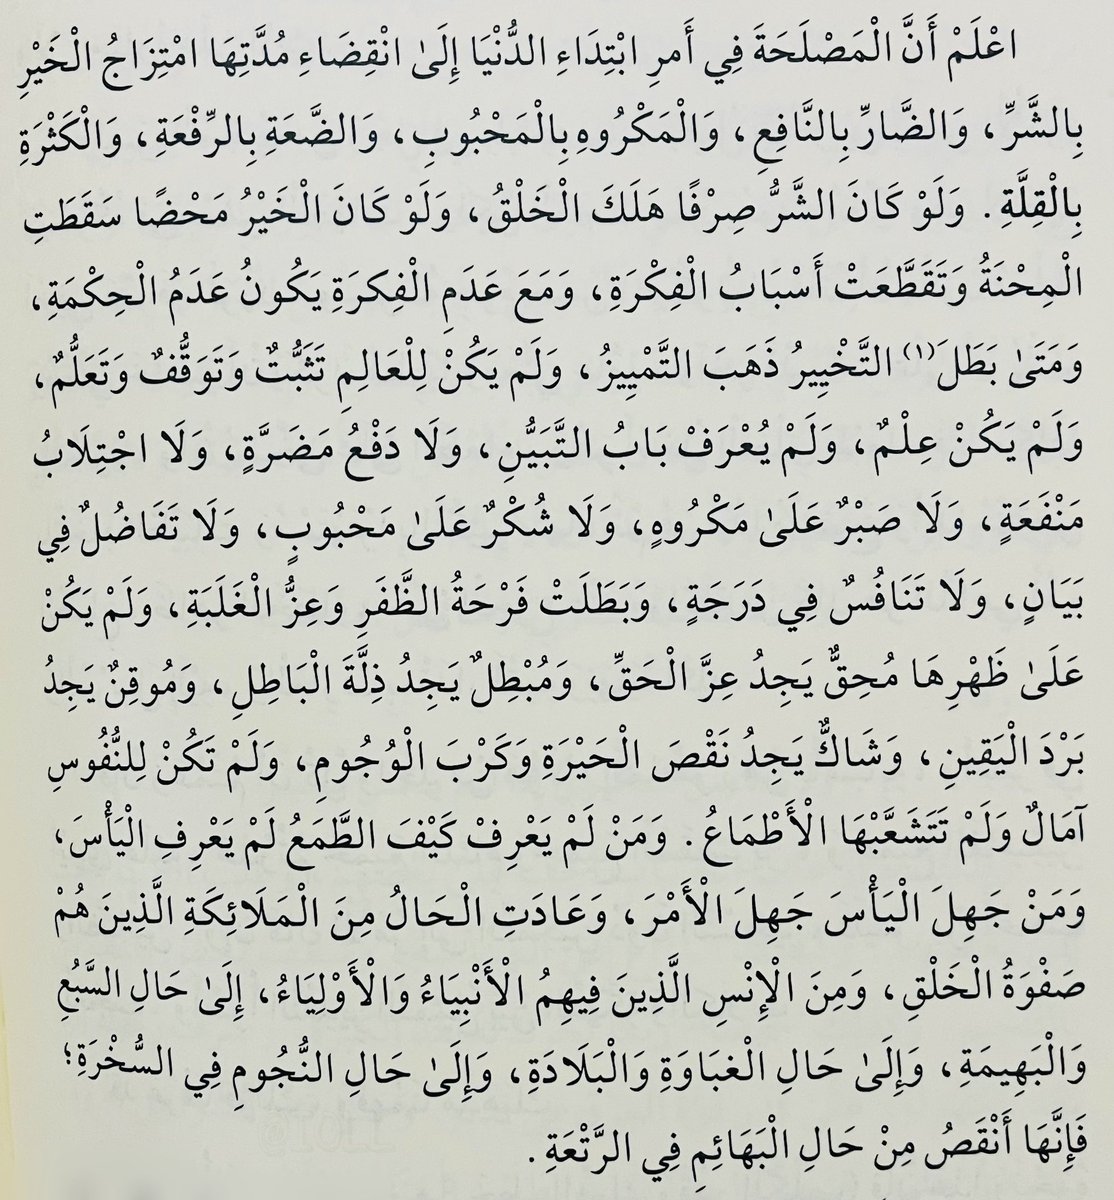 اعْلَمْ أَنَّ الْمَصْلَحَةَ فِي أَمرِ ابْتِدَاءِ الدُّنْيَا إِلَىٰ انْقِضَاءِ مُدَّتِهَا امْتِزَاجُ الْخَيْرِ
بِالشَّرِّ، وَالضَّارِّ بِالنَّافِعِ، وَالْمَكْرُوهِ بِالْمَحْبُوبِ، وَالضَّعَةِ بِالرِّفْعَةِ، وَالْكَثْرَةِ
بِالْقِلَّةِ. وَلَوْ كَانَ الشَّرُّ صِرْفًا هَلَكَ الْخَلْقُ، وَلَوْ كَانَ الْخَيْرُ مَحْضًا سَقَطَتِ
الْمِحْنَةُ وَتَقَطَّعَتْ أَسْبَابُ الْفِكْرَةِ، وَمَعَ عَدَمِ الْفِكرَةِ يَكُونُ عَدَمُ الْحِكْمَةِ،
وَمَتَىٰ بَطَلَ(١) التَّخْيِيرُ ذَهَبَ التَّمْيِيزُ، وَلَمْ يَكُنْ لِلْعَالِمِ تَثَبُّتٌ وَتَوَقُّفٌ وَتَعَلُّمٌ،
وَلَمْ يَكُنْ عِلْمٌ، وَلَمْ يُعْرَفْ بَابُ التَّبَيُّنِ، وَلَا دَفْعُ مَضَرَّةٍ، وَلَا اجْتِلَابُ
مَنْفَعَةٍ، وَلَا صَبْرٌ عَلَىٰ مَكْرُوهٍ، وَلَا شُكْرٌ عَلَىٰ مَحْبُوبٍ، وَلَا تَفَاضُلٌ فِي
بَيَانٍ، وَلَا تَنَافُسٌ فِي دَرَجَةٍ، وَبَطَلَتْ فَرْحَةُ الظَّفَرِ وَعِزُّ الْغَلَبَةِ، وَلَمْ يَكُنْ
عَلَىٰ ظَهْرِهَا مُحِقٌّ يَجِدُ عِزَّ الْحَقِّ، وَمُبْطِلٌ يَجِدُ ذِلَّةَ الْبَاطِلِ، وَمُوقِنٌ يَجِدُ
بَرْدَ الْيَقِينِ، وَشَاكٌّ يَجِدُ نَقْصَ الْحَيْرَةِ وَكَرْبَ الْوُجُومِ، وَلَمْ تَكُنْ لِلنُّفُوسِ
آمَالٌ وَلَمْ تَتَشَعَّبْهَا الْأَطْمَاعُ. وَمَنْ لَمْ يَعْرِفْ كَيْفَ الطَّمَعُ لَمْ يَعْرِفِ الْيَأْسَ،
وَمَنْ جَهِلَ الْيَأْسَ جَهِلَ الْأَمْرَ، وَعَادَتِ الْحَالُ مِنَ الْمَلَائِكَةِ الَّذِينَ هُمْ
صَفْوَةُ الْخَلْقِ، وَمِنَ الْإِنْسِ الَّذِينَ فِيهِمُ الْأَنْبِيَاءُ وَالْأَوْلِيَاءُ، إِلَىٰ حَالِ السَّبُعِ
وَالْبَهِيمَةِ، وَإِلَىٰ حَالِ الْغبَاوَةِ وَالْبَلَادَةِ، وَإِلَىٰ حَالِ النُّجُومِ فِي السُّخْرَةِ؛
فَإِنَّهَا أَنْقَصُ مِنْ حَالِ الْبَهَائِمِ فِي الرَّتْعَةِ.